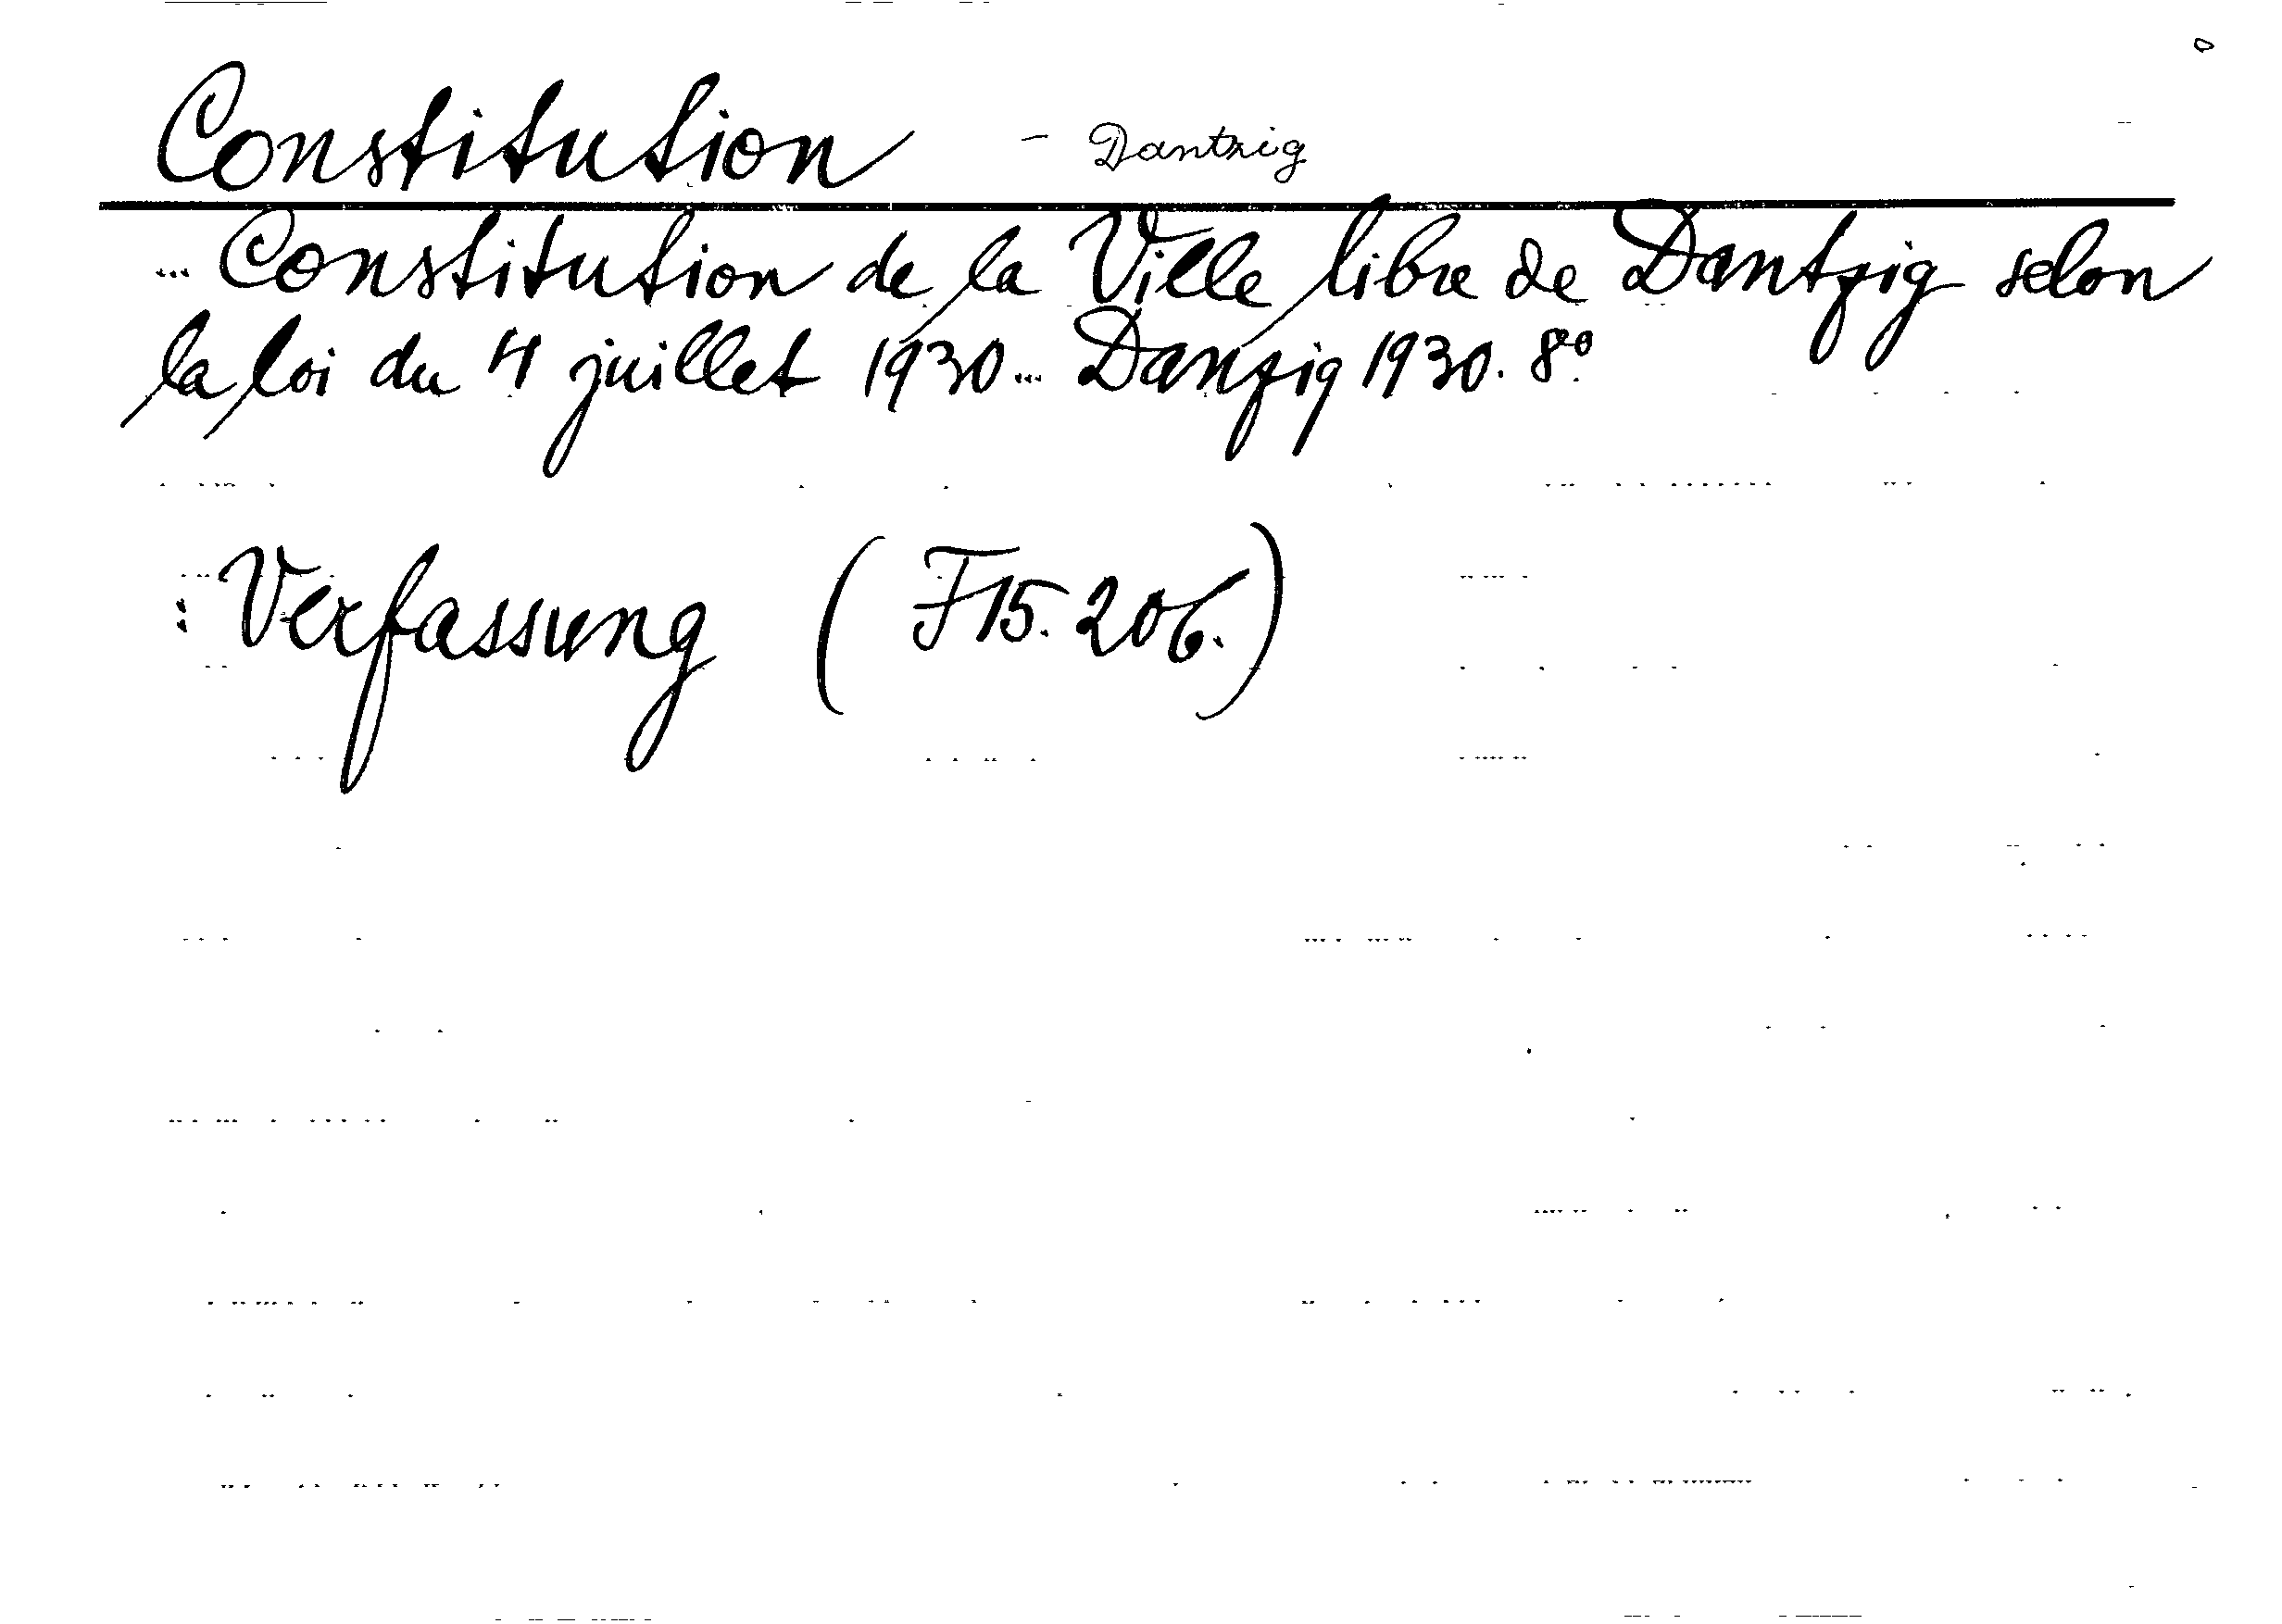 Constitution - Dantzig
... Constitution de la Ville libre de Dantzig selon
la loi du 4 juillet 1930... Danzig 1930. 8°.
: Verfassung (F15.206.)